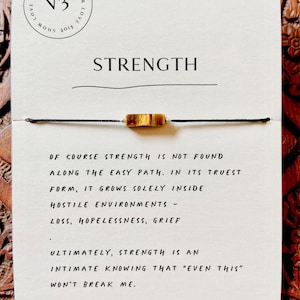 STRENGTH
OF COURSE STRENGTH IS NOT FOUND
ALONG THE EASY PATH. IN ITS TRUEST
FORM, IT GROWS SOLELY INSIDE
HOSTILE ENVIRONMENTS –
LOSS, HOPELESSNESS, GRIEF
.
ULTIMATELY, STRENGTH IS AN
INTIMATE KNOWING THAT "EVEN THIS"
WON'T BREAK ME.